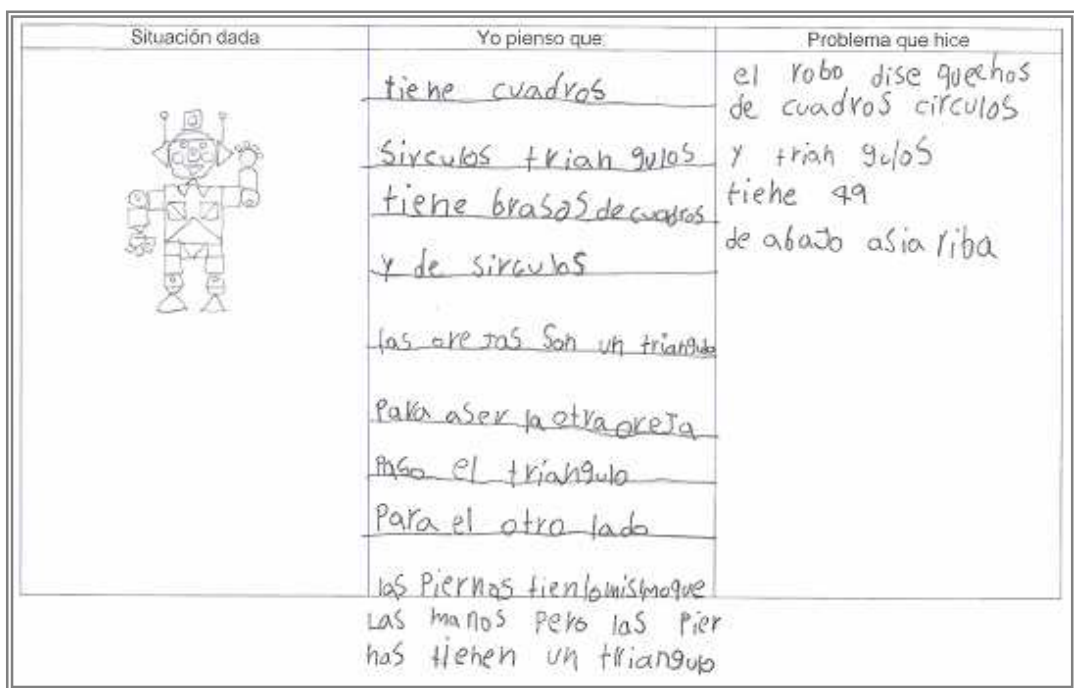 Situación dada
Yo pienso que:
tiene cuadros
Sirculos trian gulos
tiene brasos de cuadros
y de sirculos
las orejas son un triangulo
Para aser la otra oreja
Paso el triangulo
Para el otro lado
las Piernas tien lo mismo que
Las manos Pero las Pier
nas tienen un triangulo
Problema que hice
el robo dise que echos
de cuadros circulos
y trian gulos
tiene 49
de abajo asia riba